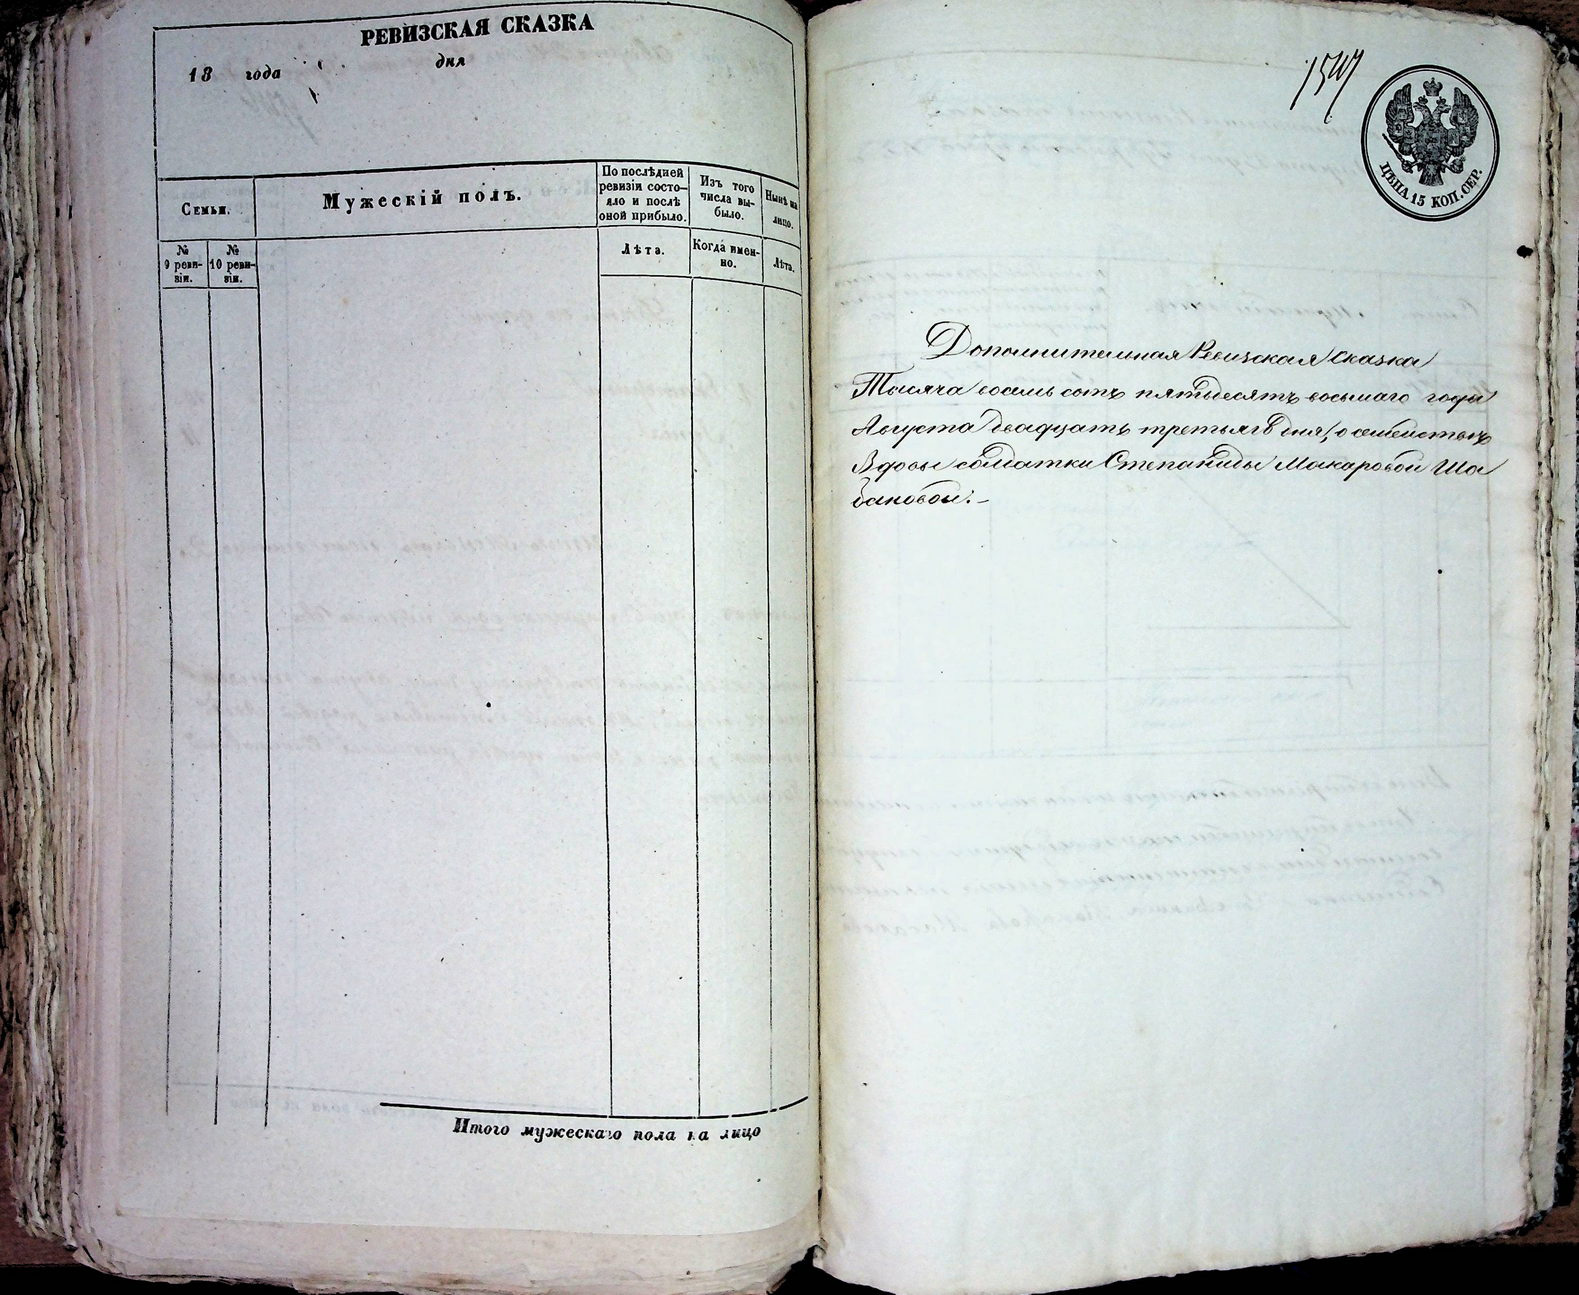 РЕВИЗСКАЯ СКАЗКА
18 года дня
Семьи.
Мужескій полъ.
По послѣдней ревизіи состо-
яло и послѣ
оной прибыло.
Изъ того
числа вы-
было.
Нынѣ на
лицо.
№
9 реви-
зіи.
№
10 реви-
зіи.
Лѣта.
Когда имен-
но.
Лѣта.
Итого мужескаго пола на лицо
ЦѢНА 15 КОП. СЕР.
Дополнительная Ревизская Сказка
Тысяча восемь сотъ пятьдесятъ восьмаго года
Августа двадцать третьяго дня, о семействѣ
Вдовы солдатки Степаниды Макаровой Ша
бановой.-